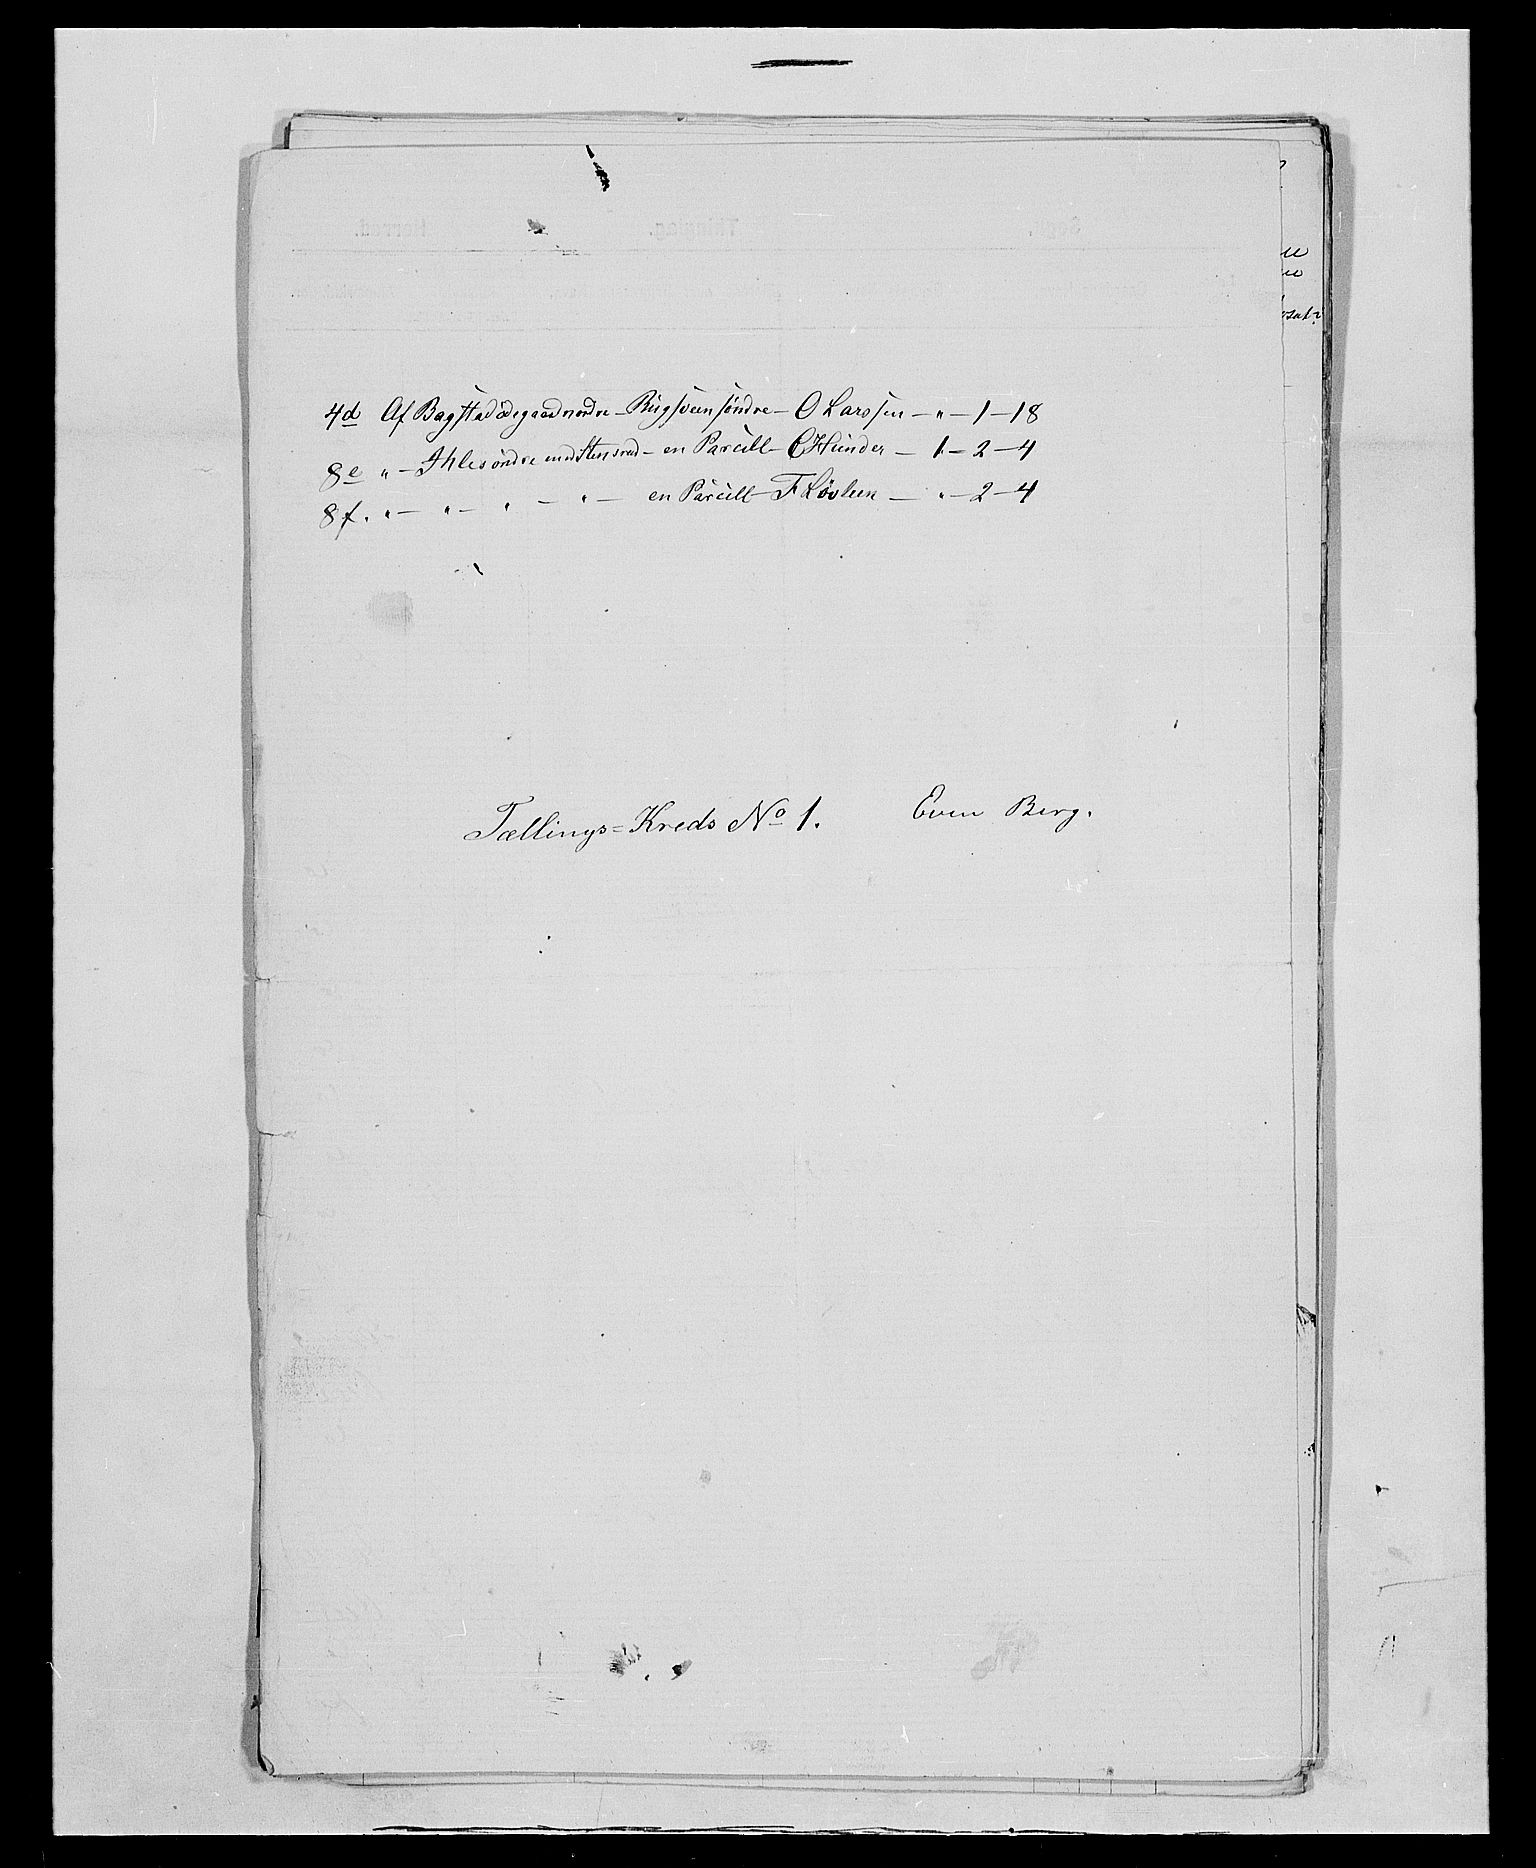 4d Af Bagstadödegaard nordre – Rugsveen söndre – O Larssen – " – 1 – 18
8e " – Ihle söndre med Stensrud – en Parcell – C Hunder – 1 – 2 – 4
8f. " – " – " – " – en Parcell – F Løvlien – " – 2 – 4
Tællings=Kreds No 1. Even Berg.